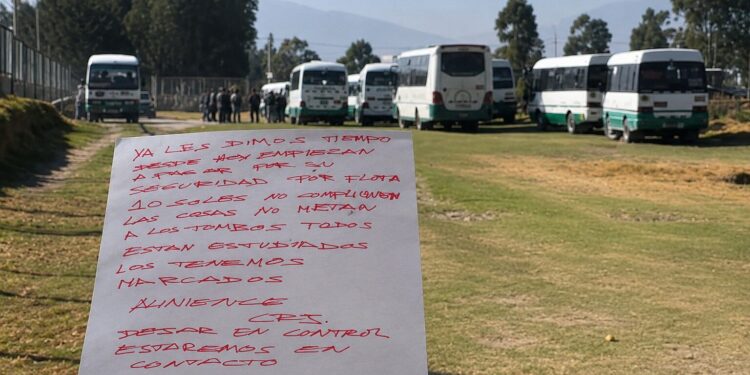 YA LES DIMOS TIEMPO
DESDE HOY EMPIEZAN
A PAGAR POR SU
SEGURIDAD POR FLOTA
10 SOLES NO COMPLIQUEN
LAS COSAS NO METAN
A LOS TOMBOS TODOS
ESTAN ESTUDIADOS
LOS TENEMOS
MARCADOS
ALINIENCE
DEJAR EN CONTROL
ESTAREMOS EN
CONTACTO